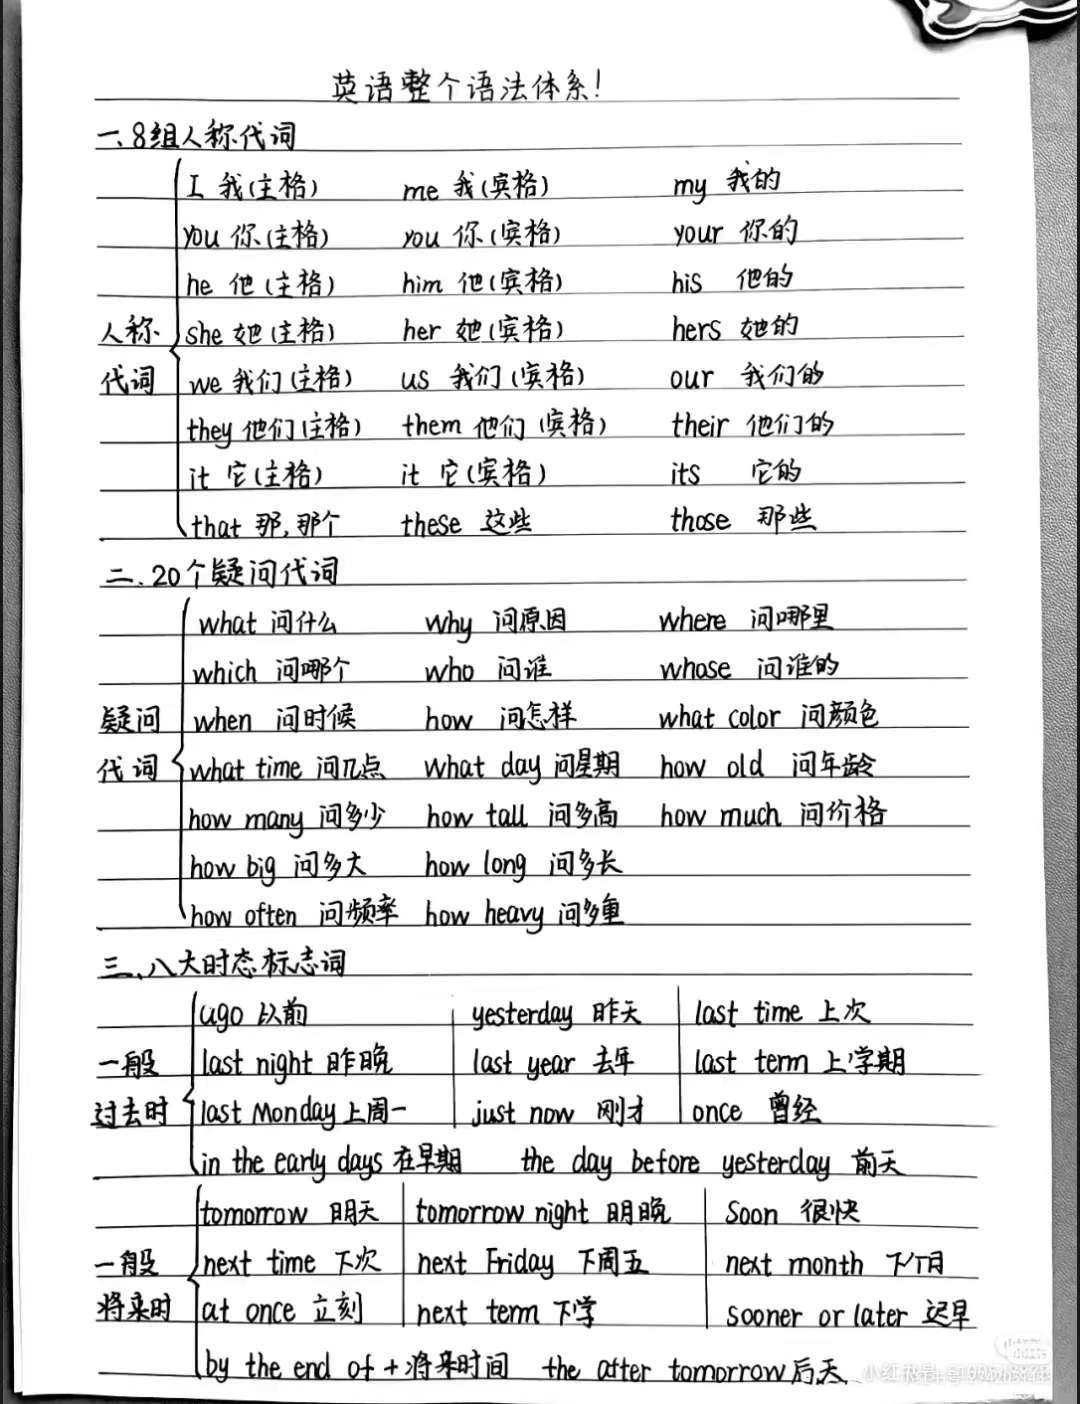 英语整个语法体系!
一、8组人称代词
I 我(主格) me 我(宾格) my 我的
you 你(主格) you 你(宾格) your 你的
he 他(主格) him 他(宾格) his 他的
人称 she 她(主格) her 她(宾格) hers 她的
代词 we 我们(主格) us 我们(宾格) our 我们的
they 他们(主格) them 他们(宾格) their 他们的
it 它(主格) it 它(宾格) its 它的
that 那,那个 these 这些 those 那些
二、20个疑问代词
what 问什么 why 问原因 where 问哪里
which 问哪个 who 问谁 whose 问谁的
疑问 when 问时候 how 问怎样 what color 问颜色
代词 what time 问几点 what day 问星期 how old 问年龄
how many 问多少 how tall 问多高 how much 问价格
how big 问多大 how long 问多长
how often 问频率 how heavy 问多重
三、八大时态标志词
ago 以前 yesterday 昨天 last time 上次
一般 last night 昨晚 last year 去年 last term 上学期
过去时 last Monday 上周一 just now 刚才 once 曾经
in the early days 在早期 the day before yesterday 前天
tomorrow 明天 tomorrow night 明晚 Soon 很快
一般 next time 下次 next Friday 下周五 next month 下个月
将来时 at once 立刻 next term 下学 sooner or later 迟早
by the end of + 将来时间 the after tomorrow 后天
小红书号: